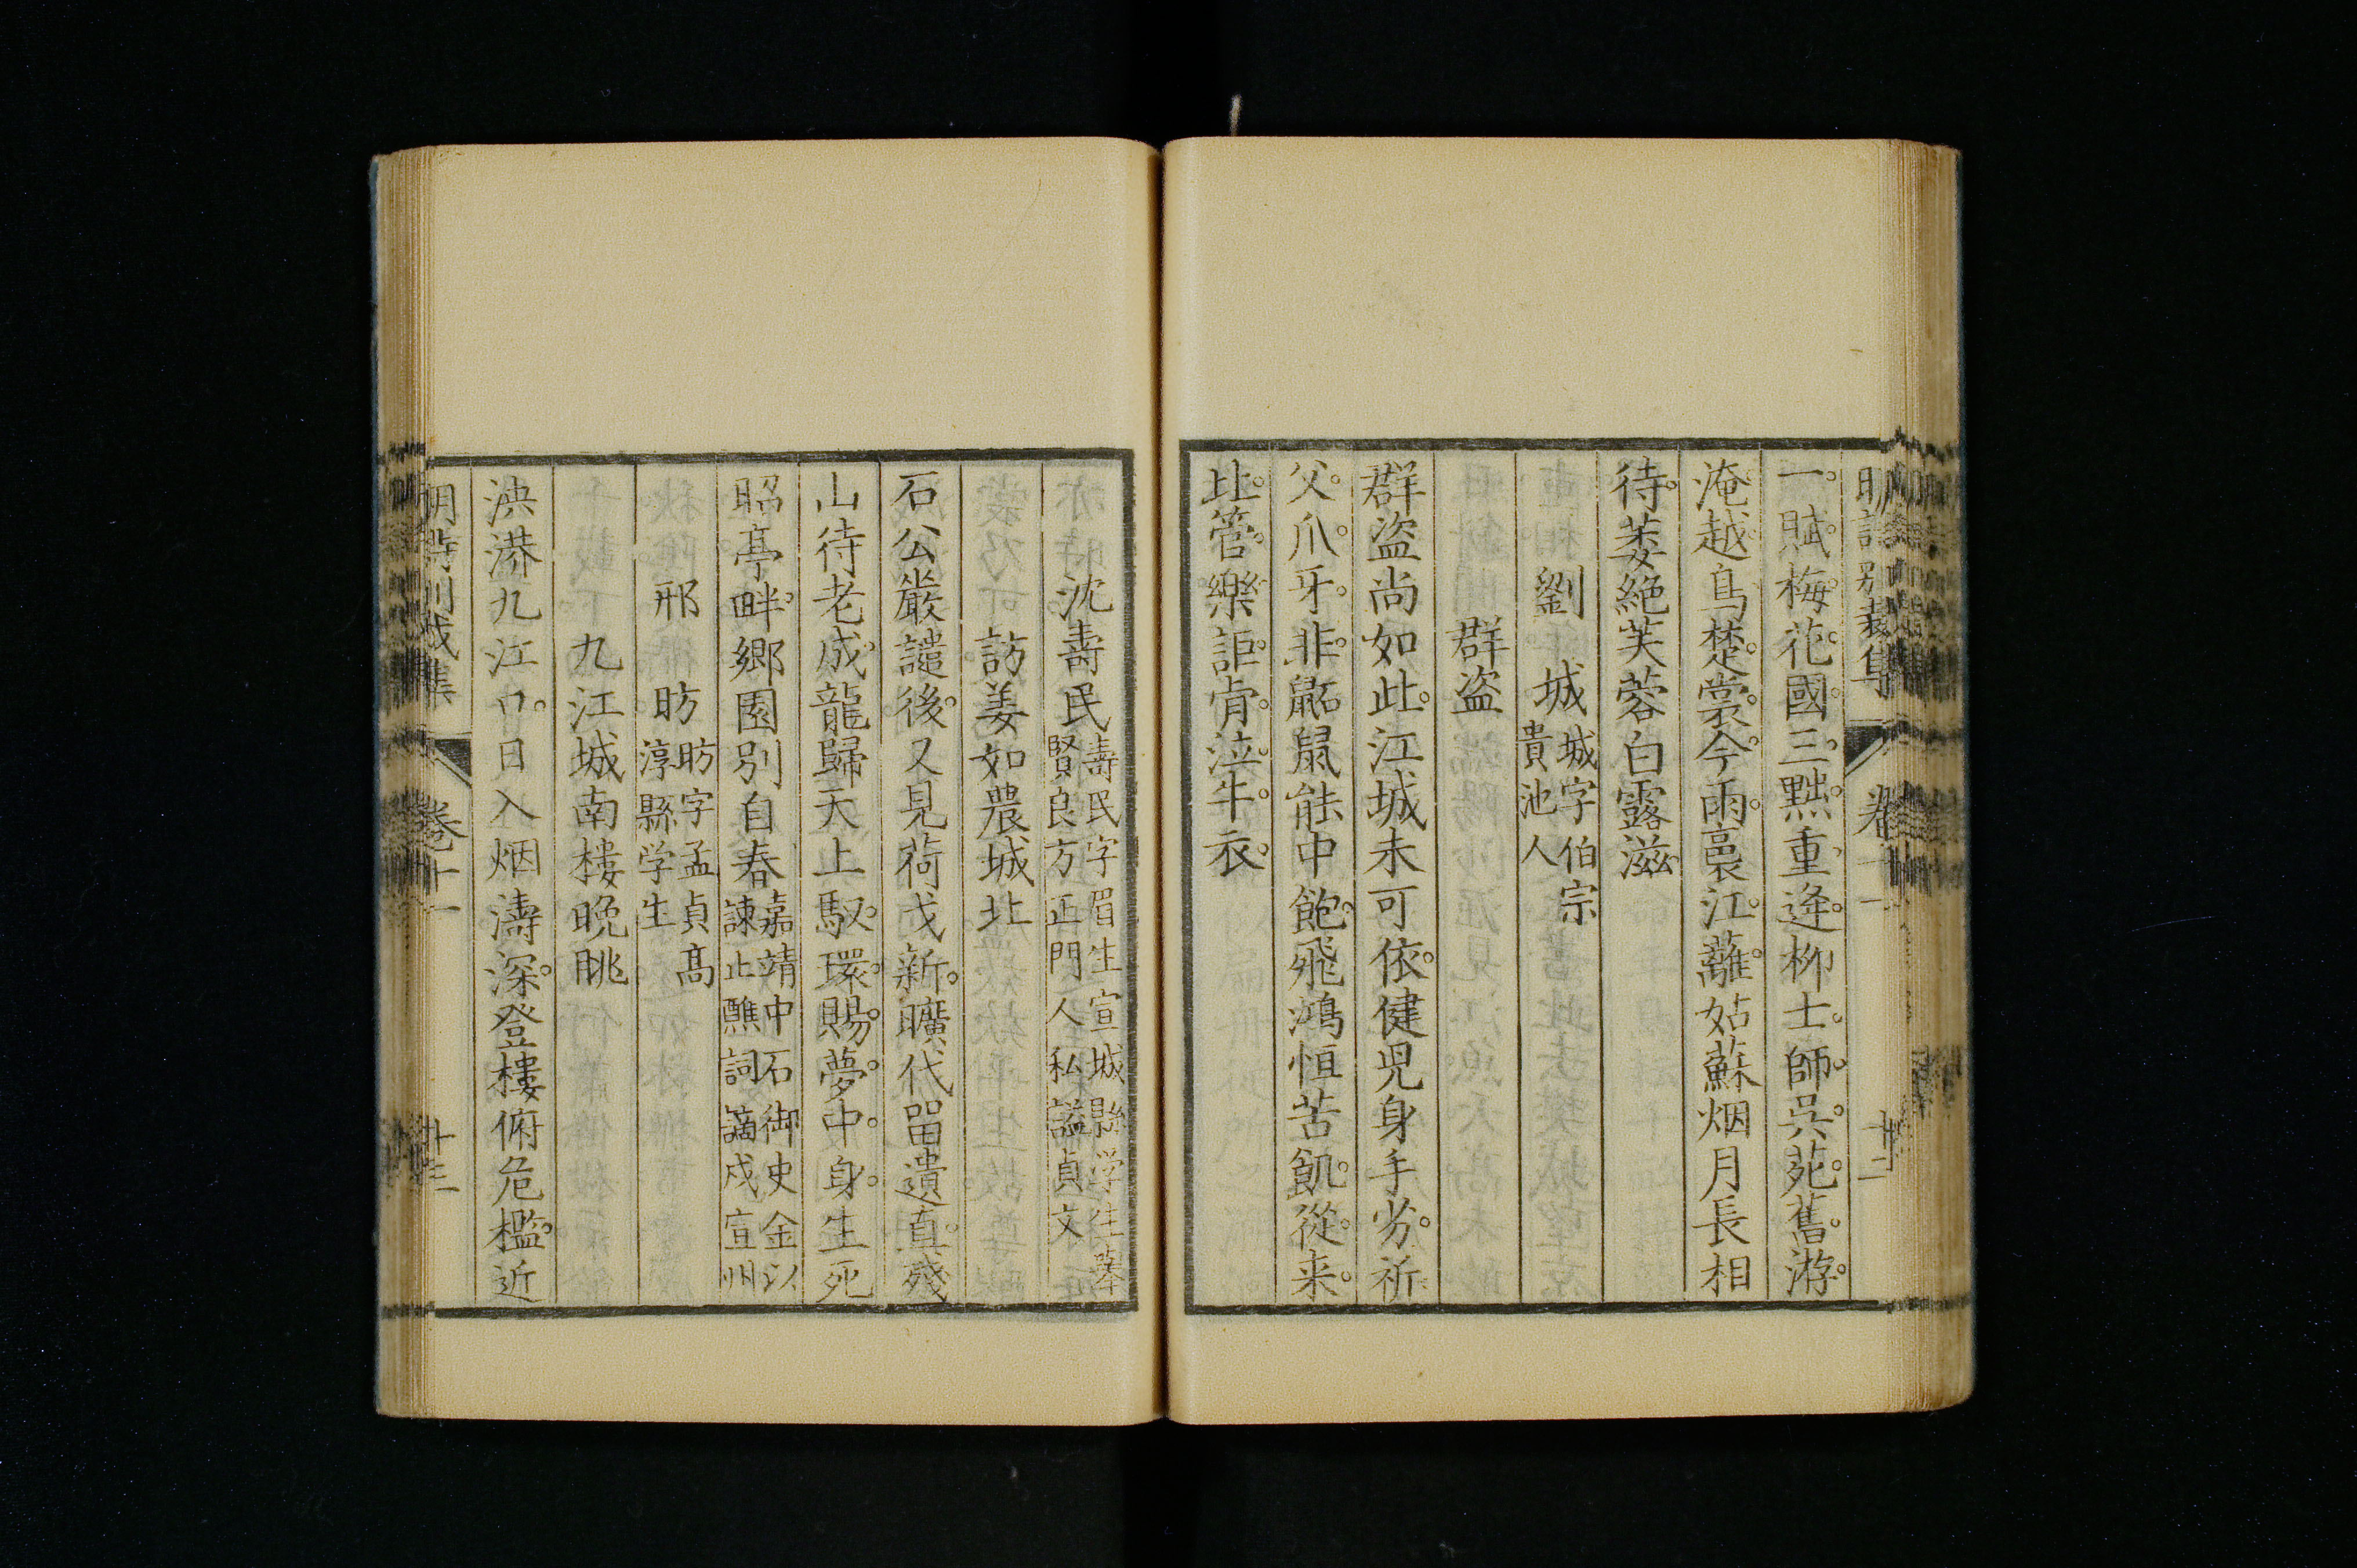 明詩別裁集 卷十一 十二
一賦梅花國三黜重逢柳士師吳苑舊游
淹越鳥楚裳今雨裛江蘺姑蘇烟月長相
待萎絕芙蓉白露滋
劉城 城字伯宗
貴池人
群盜
群盜尚如此江城未可依健兒身手劣祈
父爪牙非鼫鼠能中飽飛鴻恒苦飢從来
比管樂詎肯泣牛衣
沈壽民 壽民字眉生宣城縣学生舉
賢良方正門人私謚貞文
訪姜如農城北
石公嚴譴後又見荷戈新曠代畱遺直殘
山待老成龍歸天上馭環賜夢中身生死
昭亭畔鄉園別自春 嘉靖中石御史金以
諫止醮詞謫戍宣州
邢昉 昉字孟貞高
淳縣学生
九江城南樓晚眺
泱漭九江口日入烟濤深登樓俯危檻近
明詩別裁集 卷十一 十三